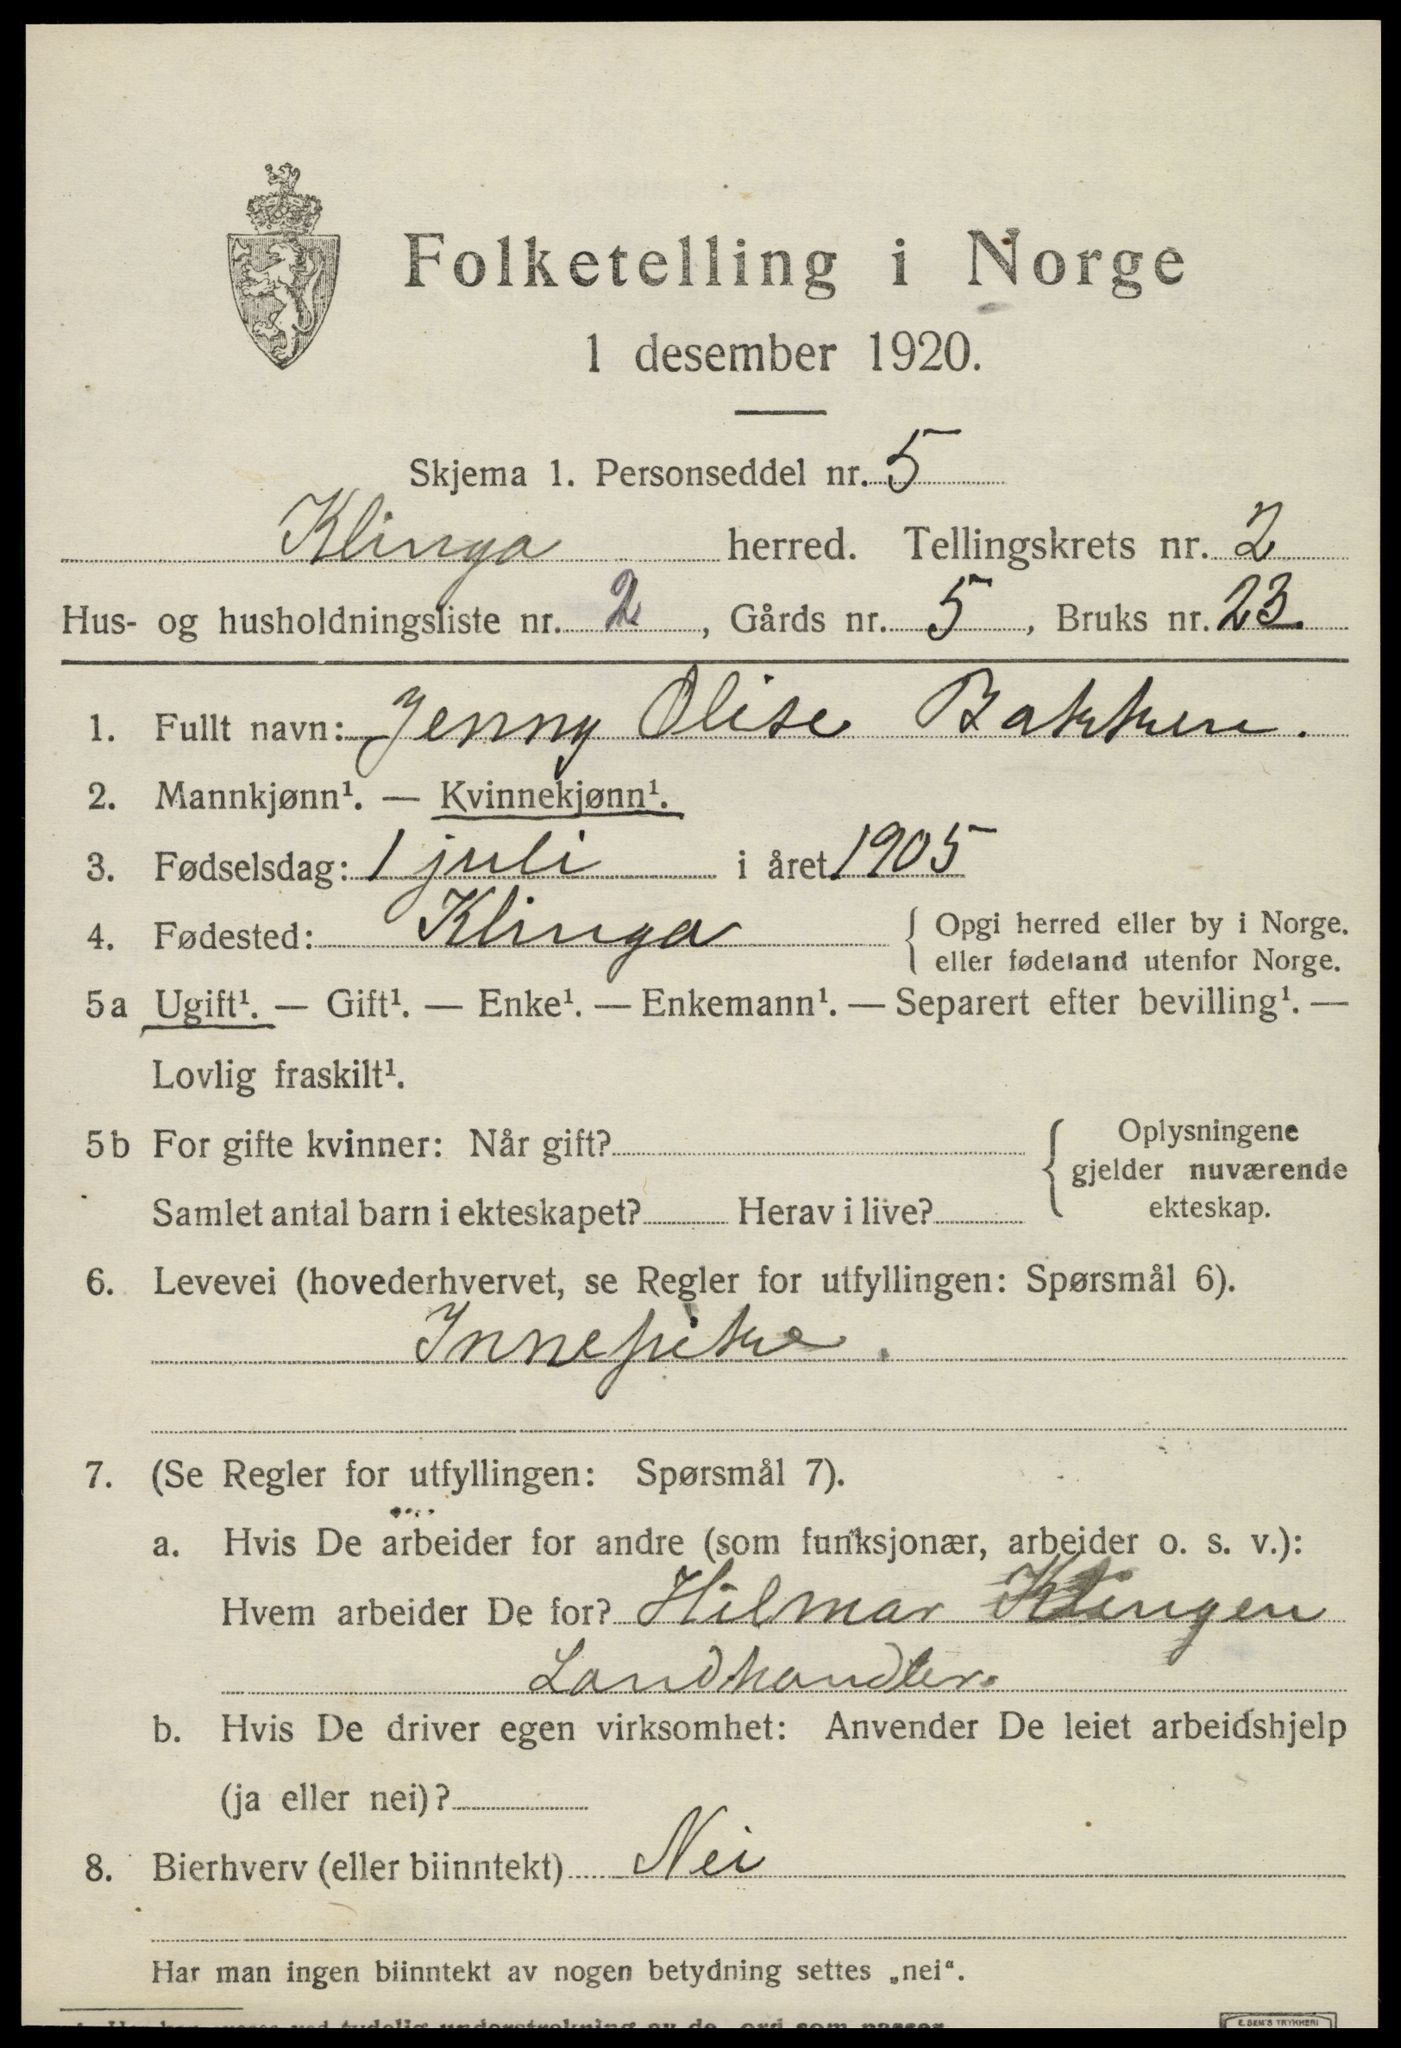 Folketelling i Norge
1 desember 1920.
Skjema 1. Personseddel nr. 5
Klinga herred. Tellingskrets nr. 2
Hus- og husholdningsliste nr. 2, Gårds nr. 5, Bruks nr. 23.
1. Fullt navn: Jenny Olise Bakken.
2. Mannkjønn¹. — Kvinnekjønn¹.
3. Fødselsdag: 1 juli i året 1905
4. Fødested: Klinga { Opgi herred eller by i Norge.
eller fødeland utenfor Norge.
5a Ugift¹. — Gift¹. — Enke¹. — Enkemann¹. — Separert efter bevilling¹. —
Lovlig fraskilt¹.
5b For gifte kvinner: Når gift? { Oplysningene
gjelder nuværende
Samlet antal barn i ekteskapet? Herav i live? ekteskap.
6. Levevei (hovederhvervet, se Regler for utfyllingen: Spørsmål 6).
Innepike.
7. (Se Regler for utfyllingen: Spørsmål 7).
a. Hvis De arbeider for andre (som funksjonær, arbeider o. s. v.):
Hvem arbeider De for? Hilmar Klingen
Landhandler.
b. Hvis De driver egen virksomhet: Anvender De leiet arbeidshjelp
(ja eller nei)?
8. Bierhverv (eller biinntekt) Nei
Har man ingen biinntekt av nogen betydning settes „nei“.
E. SEM'S TRYKKERI